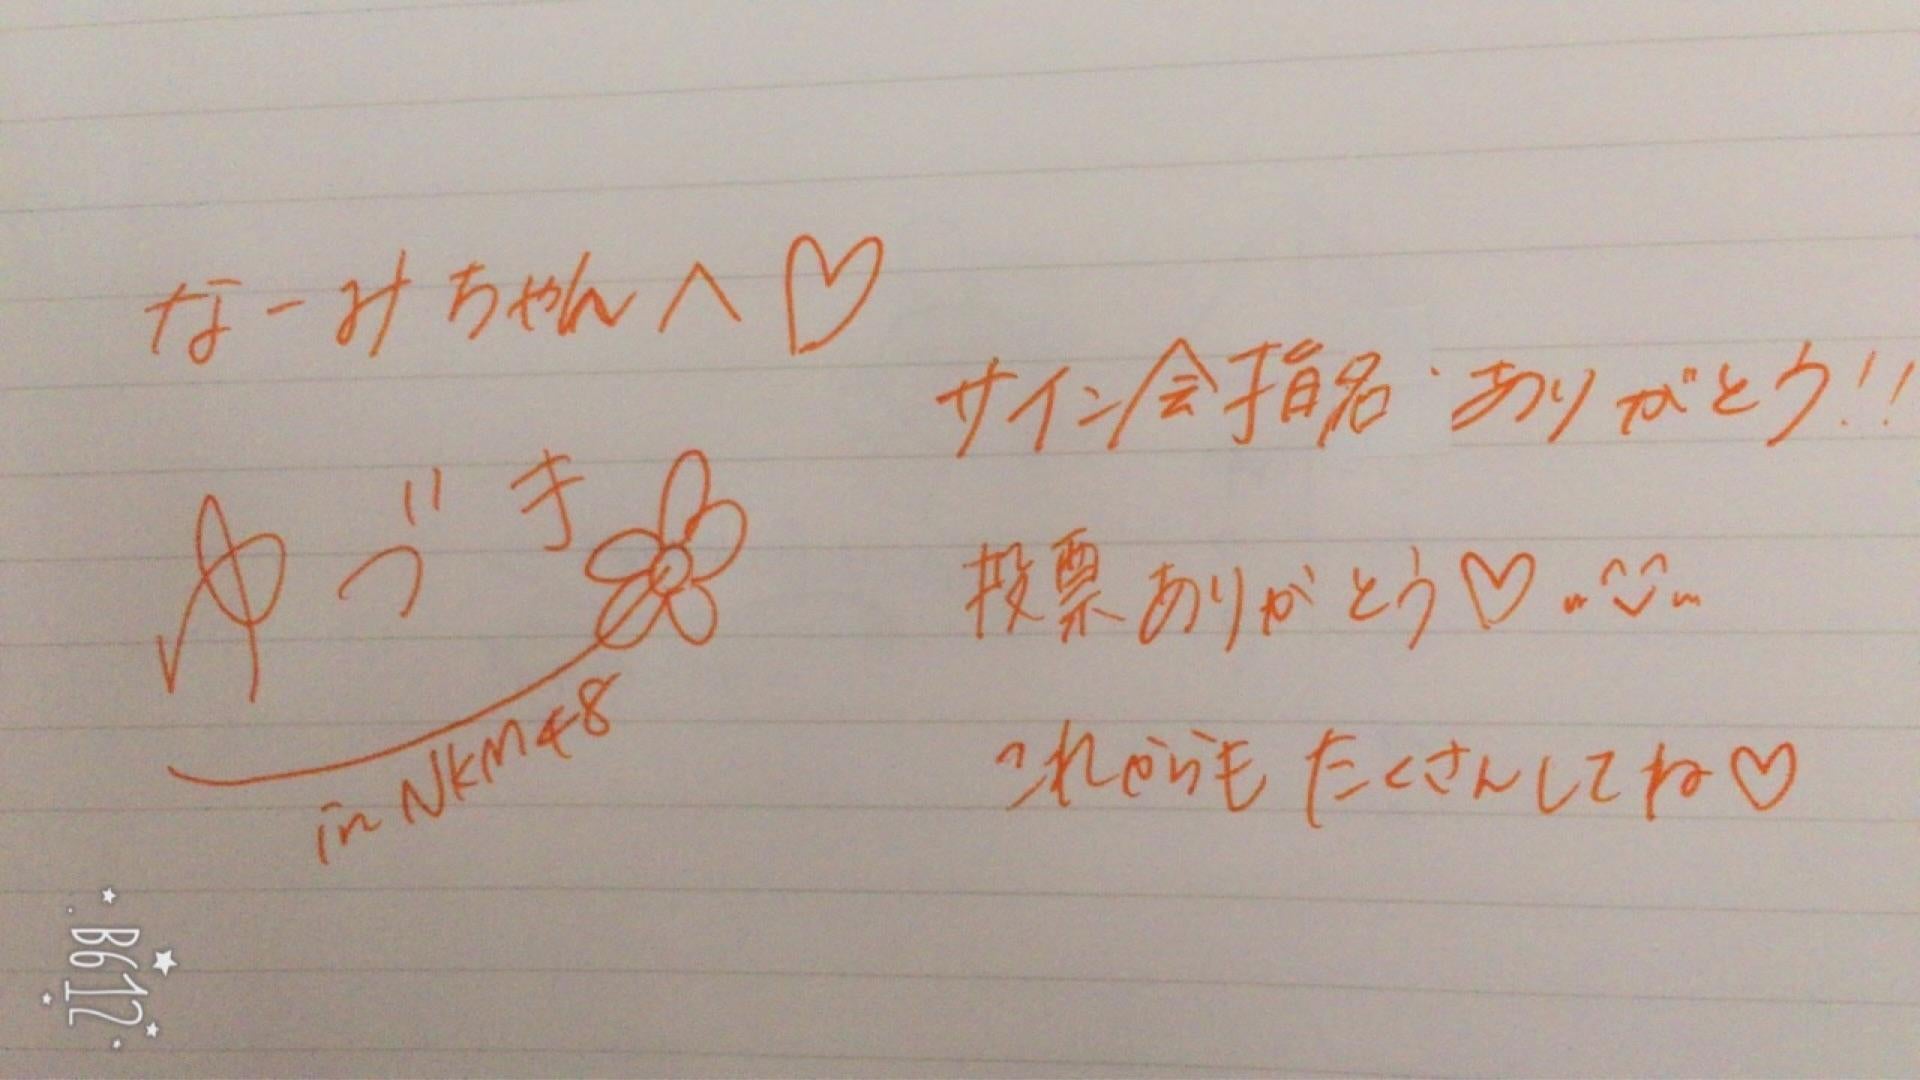 なーみちゃんへ♡
ゆづき
in NKM48
サイン会指名・ありがとう!!
投票ありがとう♡
これからもたくさんしてね♡
B612